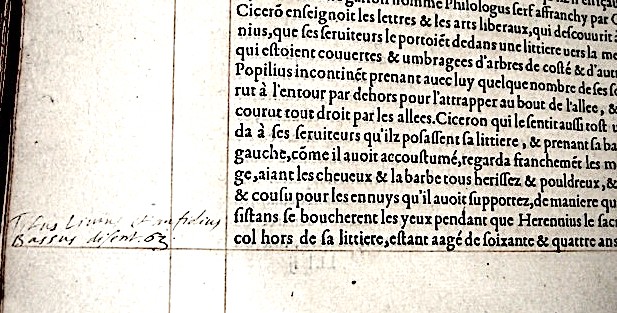 homme Philologus serf affranchy par C
Cicerõ enseignoit les lettres & les arts liberaux, qui descouurit à
nius, que ses seruiteurs le portoiẽt dedans une littiere uers la me
qui estoient couuertes & umbragees d'arbres de costé & d'aut
Popilius incontinẽt prenant auec luy quelque nombre de ses so
rut à l'entour par dehors pour l'attrapper au bout de l'allee, &
courut tout droit par les allees. Ciceron qui le sentit aussi tost u
da à ses seruiteurs qu'ilz posassent sa littiere, & prenant sa ba
gauche, cõme il auoit accoustumé, regarda franchemẽt les m
ge, aiant les cheueux & la barbe tous herissez & pouldreux, &
& cousu pour les ennuys qu'il auoit supportez, de maniere qu
sistans se boucherent les yeux pendant que Herennius le sacr
col hors de sa littiere, estant aagé de soixante & quattre ans
Titus Liuius & Aufidius
Bassus disent 63